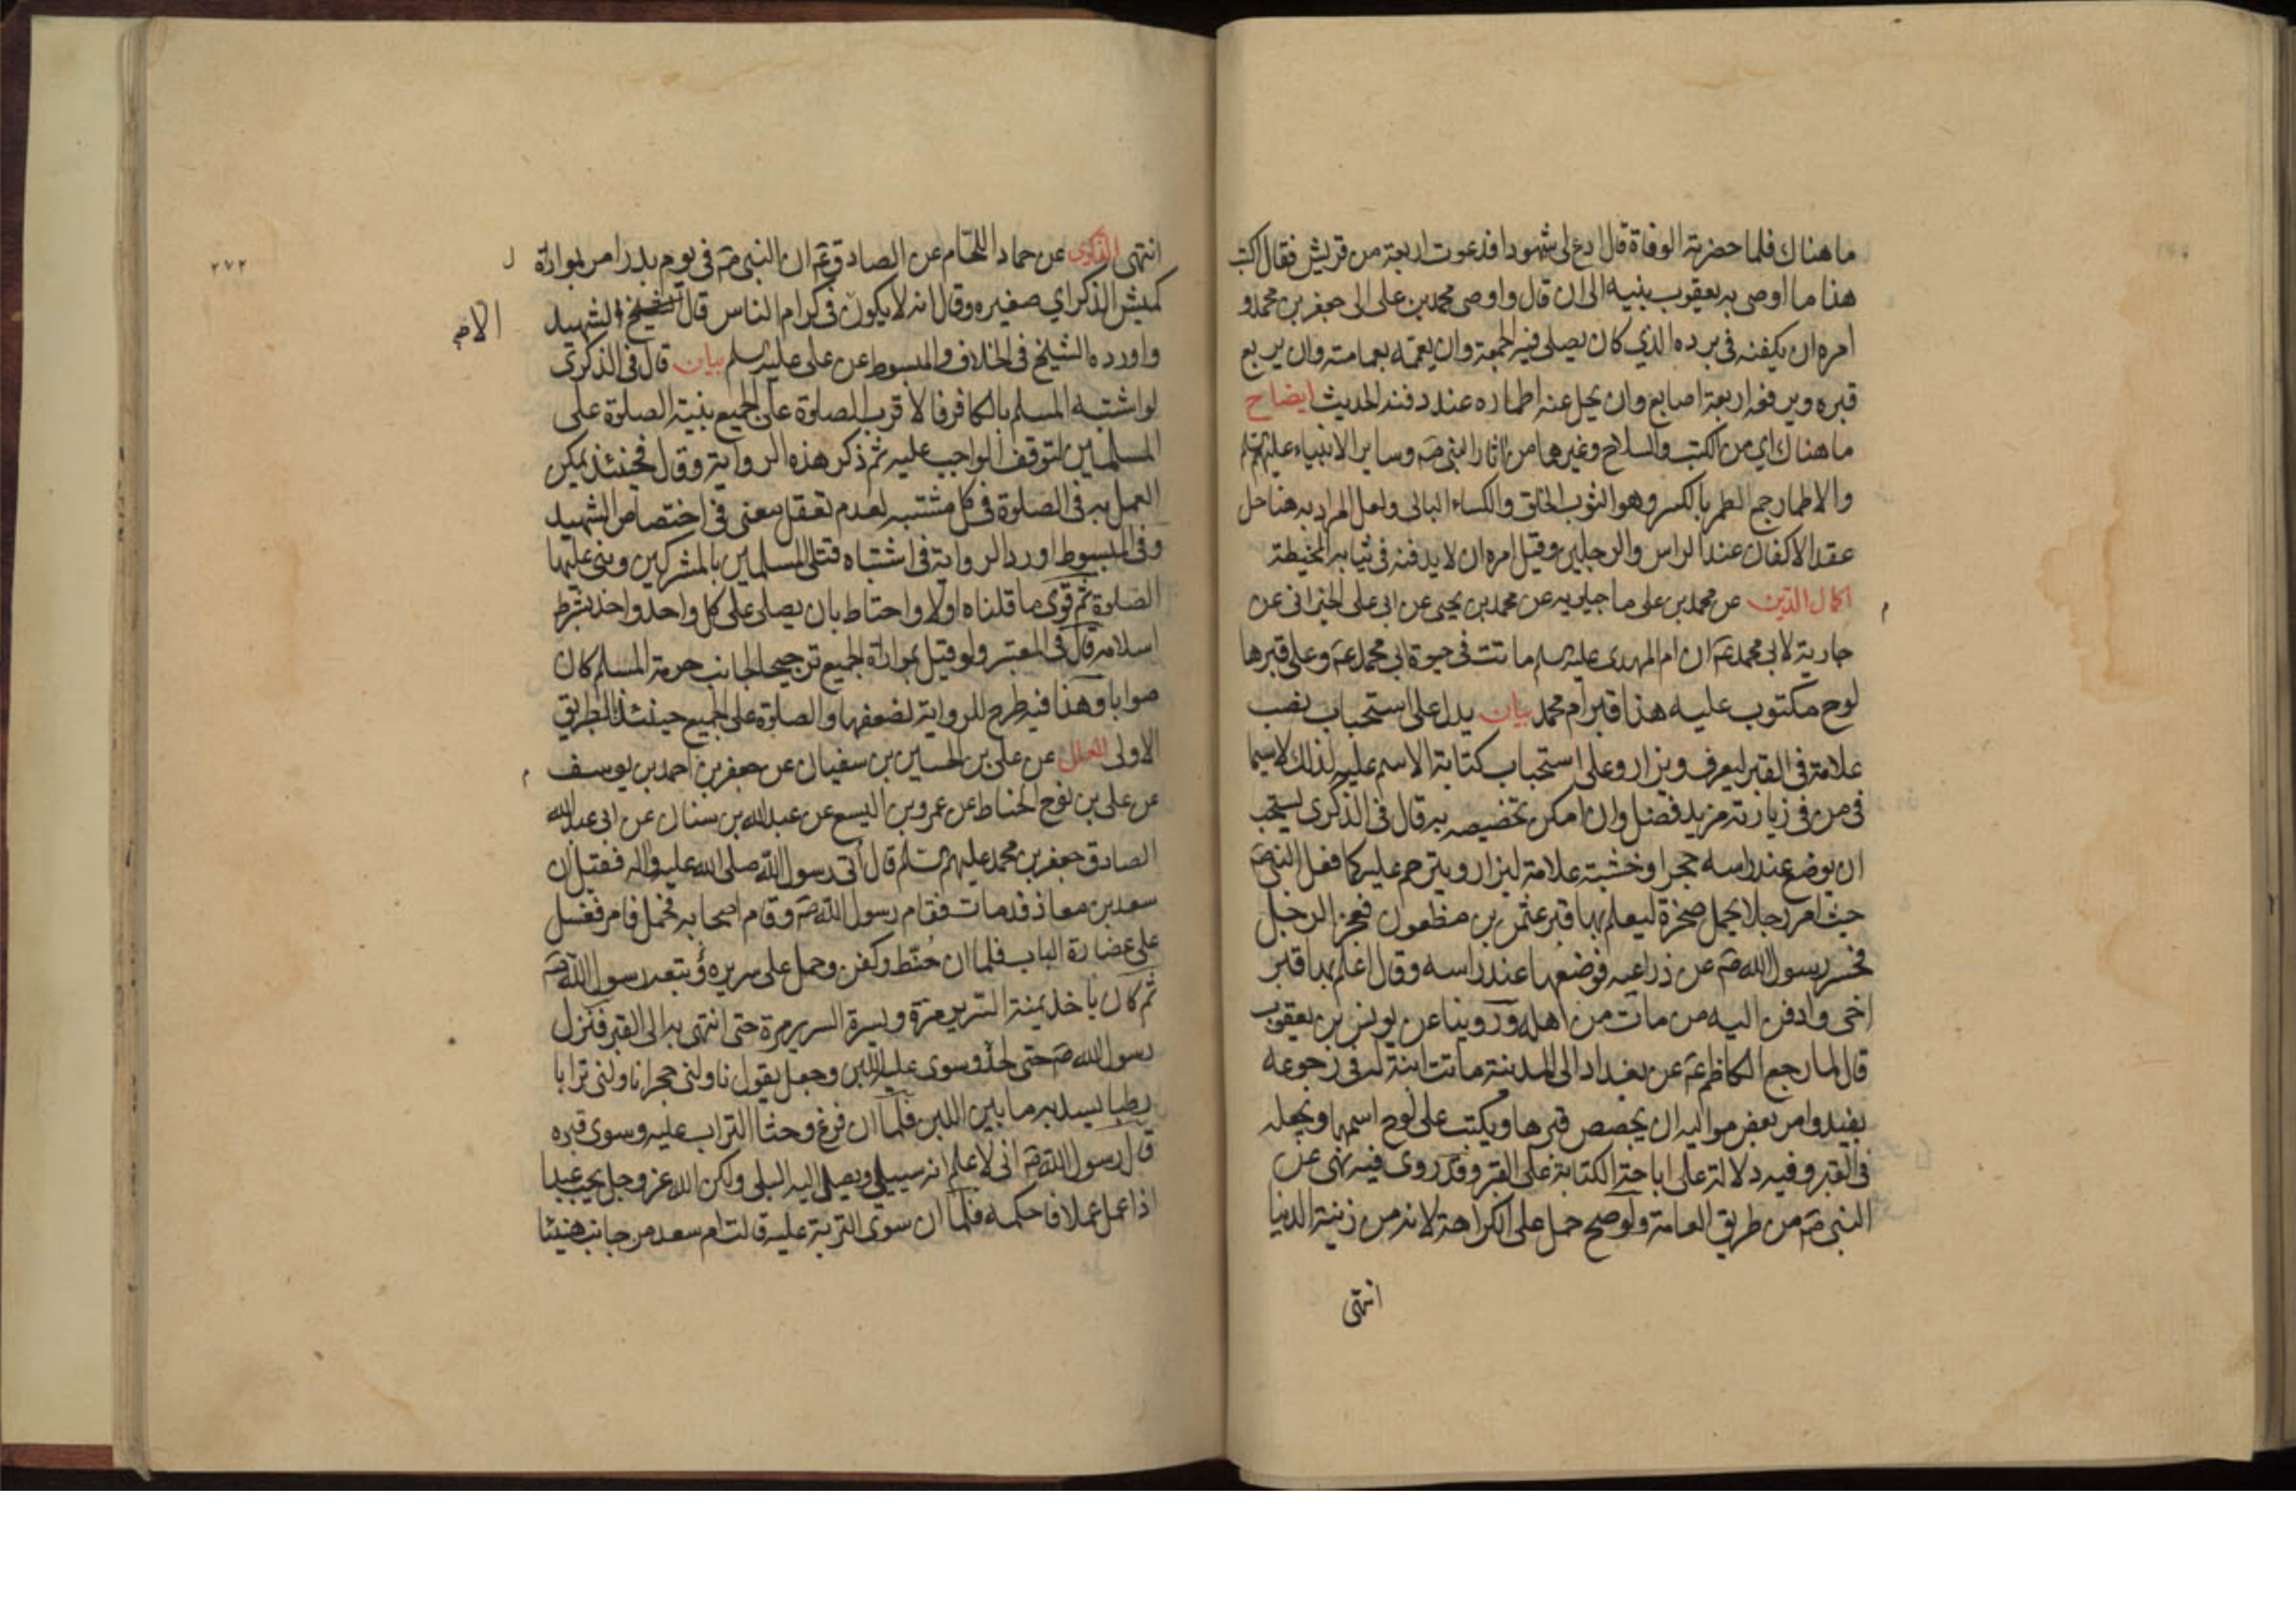 ما هناك فلما حضرته الوفاة قال ادع لى شهودا فدعوت اربعة من قريش فقال اكتب
هذا ما اوصى به يعقوب بنيه الى ان قال واوصى محمد بن على الى جعفر بن محمد و
امره ان يكفنه فى برده الذي كان يصلى فيه الجمعة وان يعممه بعمامته وان يربع
قبره ويرفعه اربعة اصابع وان يحل عنه اطماره عند دفنه الحديث ايضاح
ما هناك اي من الكتب والسلاح وغيرهما من اثار النبى صَه وساير الانبياء عليهم
والاطمار جمع الطمر بالكسر وهو الثوب الخلق والكساء البالى ولعل المراد به هنا حل
عقد الاكفان عند الراس والرجلين وقيل امره ان لا يدفنه فى ثيابه المخيطة
اكمال الدين عن محمد بن على ماجيلويه عن محمد بن يحيى عن ابى على الخيزرانى عن
جارية لابى محمد عَه ان ام المهدى عليه السلم ماتت فى حيوة ابى محمد عَه وعلى قبرها
لوح مكتوب عليه هذا قبر ام محمد بيان يدل على استحباب نصب
علامة فى القبر ليعرف ويزار وعلى استحباب كتابة الاسم عليه لذلك لا سيما
فى من فى زيارته مزيد فضل وان امكن تخصيصه به قال فى الذكرى يستحب
ان يوضع عند راسه حجر او خشبة علامة ليزار ويترحم عليه كما فعل النبى صَه
حيث امر رجلا يحمل صخرة ليعلم بها قبر عثمن بن مظعون فعجز الرجل
فحسر رسول الله صَه عن ذراعيه فوضعها عند راسه وقال اعلم بها قبر
اخى وادفن اليه من مات من اهله وروينا عن يونس بن يعقوب
قال لما رجع الكاظم عَه عن بغداد الى المدينة ماتت ابنة له فى رجوعه
بفيد وامر بعض مواليه ان يجصص قبرها ويكتب على لوح اسمها ويجعله
فى القبر وفيه دلالة على اباحة الكتابة على القبر وقد روى فيه نهى عن
النبى صَه من طريق العامة ولو صح حمل على الكراهة لانه من زينة الدنيا
انتهى
٢٧٢
انتهى الذكرى عن حماد اللحام عن الصادق عَه ان النبى صَه فى يوم بدر امر بمواراة
كميش الذكر اي صغيره وقال انه لا يكون فى كرام الناس قال الشهيد
واورده الشيخ فى الخلاف والمبسوط عن على عليه السلم بيان قال فى الذكرى
لو اشتبه المسلم بالكافر فالاقرب الصلوة على الجميع بنية الصلوة على
المسلمين لتوقف الواجب عليه ثم ذكر هذه الرواية وقال فحينئذ يمكن
العمل به فى الصلوة فى كل مشتبه لعدم تعقل معنى فى اختصاص الشهيد
وفى المبسوط اورد الرواية فى اشتباه قتلى المسلمين بالمشركين وبنى عليها
الصلوة ثم قوى ما قلناه اولا واحتاط بان يصلى على كل واحد واحد بشرط
اسلامه قال فى المعتبر ولو قيل بمواراة الجميع ترجيحا لجانب حرمة المسلم كان
صوابا وهذا فيه طرح للرواية لضعفها والصلوة على الجميع حينئذ بالطريق
الاولى العلل عن على بن الحسين بن سفيان عن جعفر بن احمد بن يوسف
عن على بن نوح الحناط عن عمرو بن اليسع عن عبد الله بن سنان عن ابى عبد الله
الصادق جعفر بن محمد عليهم السلم قال اتى رسول الله صلى الله عليه واله فقيل ان
سعد بن معاذ قد مات فقام رسول الله صَه وقام اصحابه فحمل فامر فغسل
على عضادة الباب فلما ان حنط وكفن وحمل على سريره وتبعه رسول الله صَه
ثم كان ياخذ يمنة السرير مرة ويسرة السرير مرة حتى انتهى به الى القبر فنزل
رسول الله صَه حتى لحده وسوى عليه اللبن وجعل يقول ناولنى حجرا ناولنى ترابا
رطبا يسد به ما بين اللبن فلما ان فرغ وحثا التراب عليه وسوى قبره
قال رسول الله صَه انى لاعلم انه سيبلى ويصل اليه البلى ولكن الله عز وجل يحب عبدا
اذا عمل عملا فاحكمه فلما ان سوى التربة عليه قالت ام سعد من جانب هنيئا